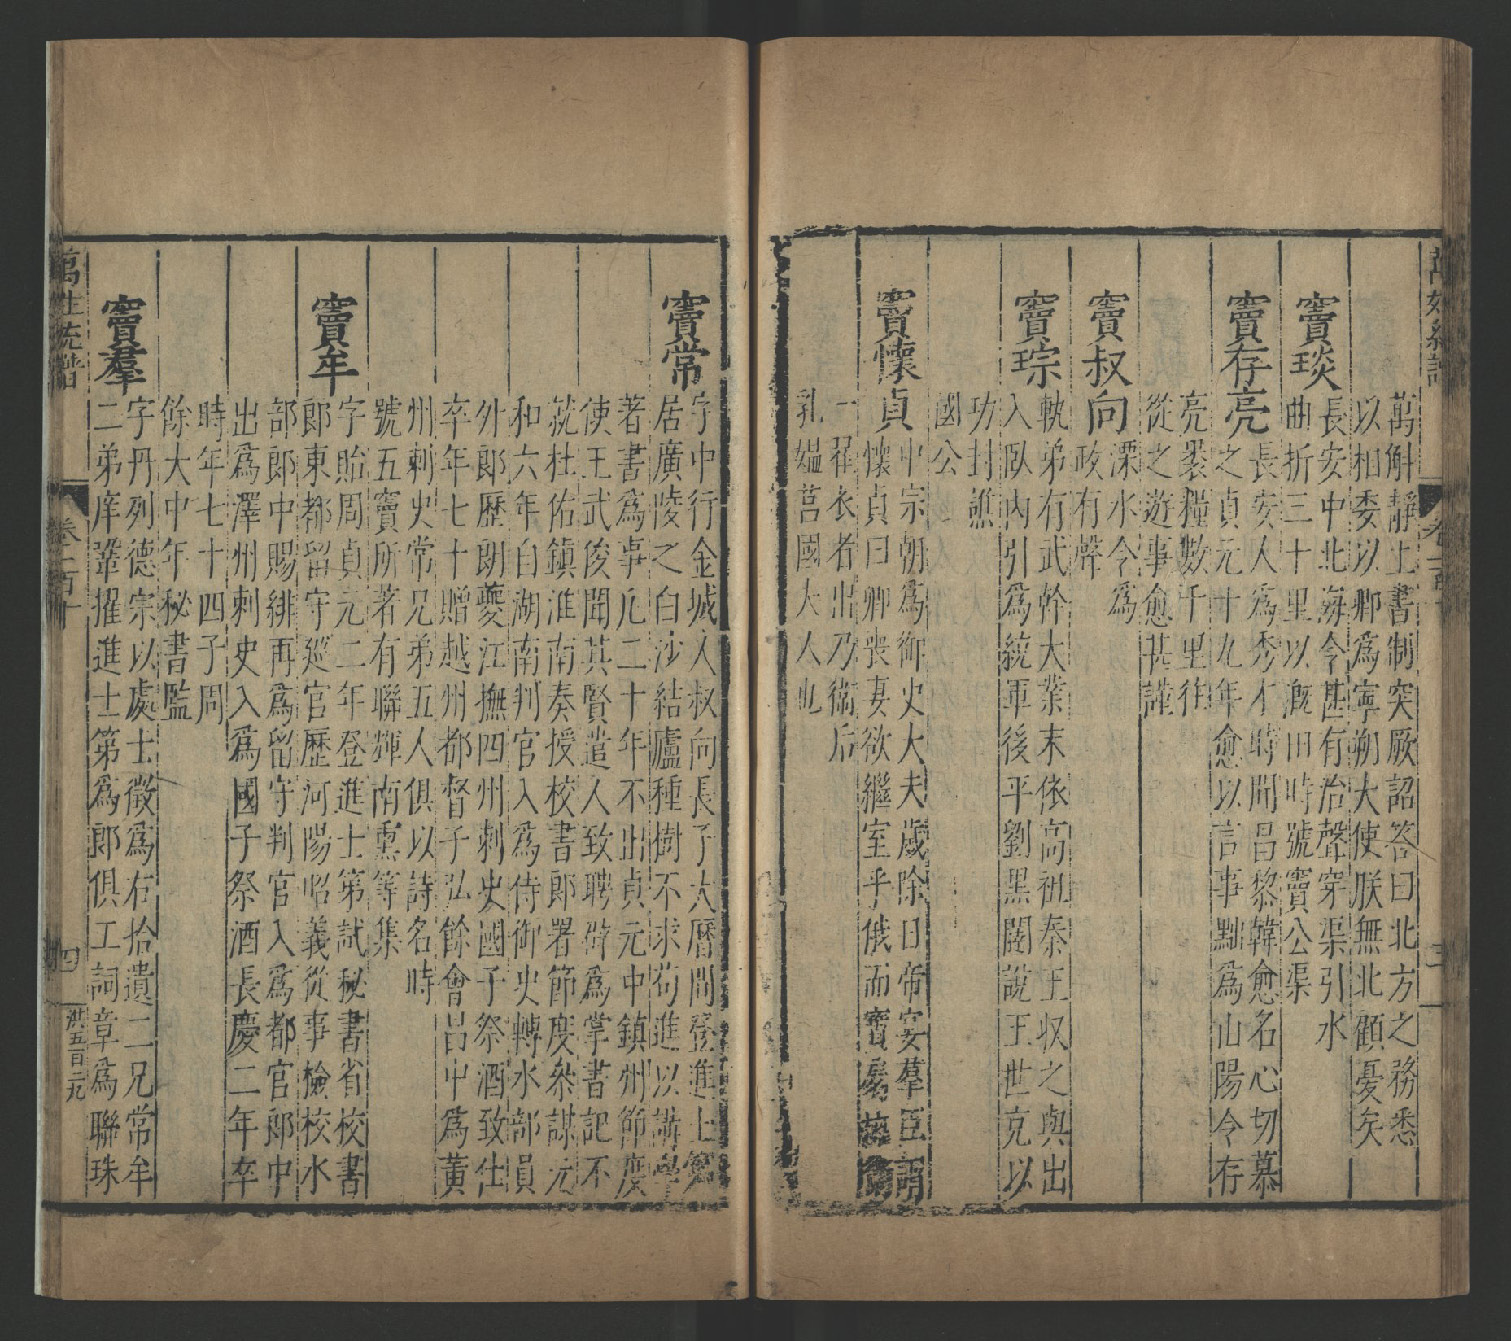 萬姓統譜
卷一百十
三
萬斛靜上書制突厥詔答曰北方之務悉
以相委以卿為寧朔大使朕無北顧憂矣
竇琰
長安中北海令甚有治聲穿渠引水
曲折三十里以溉田時號竇公渠
竇存亮
長安人為秀才時聞昌黎韓愈名心切慕
之貞元十九年愈以言事黜為山陽令存
亮裹糧數千里往
從之遊事愈甚謹
竇叔向
溧水令為
政有聲
竇琮
軌弟有武幹大業末依高祖秦王收之與出
入臥內引為統軍後平劉黑闥說王世充以
功封譙
國公
竇懷貞
中宗朝為御史大夫歲除日帝宴羣臣謂
懷貞曰卿喪妻欲繼室乎俄而寶扇
一翟衣者出乃衛后
乳媼莒國大人也
竇常
字中行金城人叔向長子大曆間登進士第
居廣陵之白沙結廬種樹不求苟進以講學
著書為事凡二十年不出貞元中鎮州節度
使王武俊聞其賢遣人致聘辟為掌書記不
就杜佑鎮淮南奏授校書郎署節度參謀元
和六年自湖南判官入為侍御史轉水部員
外郎歷朗夔江撫四州刺史國子祭酒致仕
卒年七十贈越州都督子弘餘會昌中為黃
州刺史常兄弟五人俱以詩名時
號五竇所著有聯輝南薰等集
竇牟
字貽周貞元二年登進士第試秘書省校書
郎東都留守巡官歷河陽昭義從事檢校水
部郎中賜緋再為留守判官入為都官郎中
出為澤州刺史入為國子祭酒長慶二年卒
時年七十四子周
餘大中年秘書監
竇羣
字丹列德宗以處士徵為右拾遺二兄常牟
二弟庠鞏擢進士第為郎俱工詞章為聯珠
萬姓統譜
卷一百十
四
洪五百二九